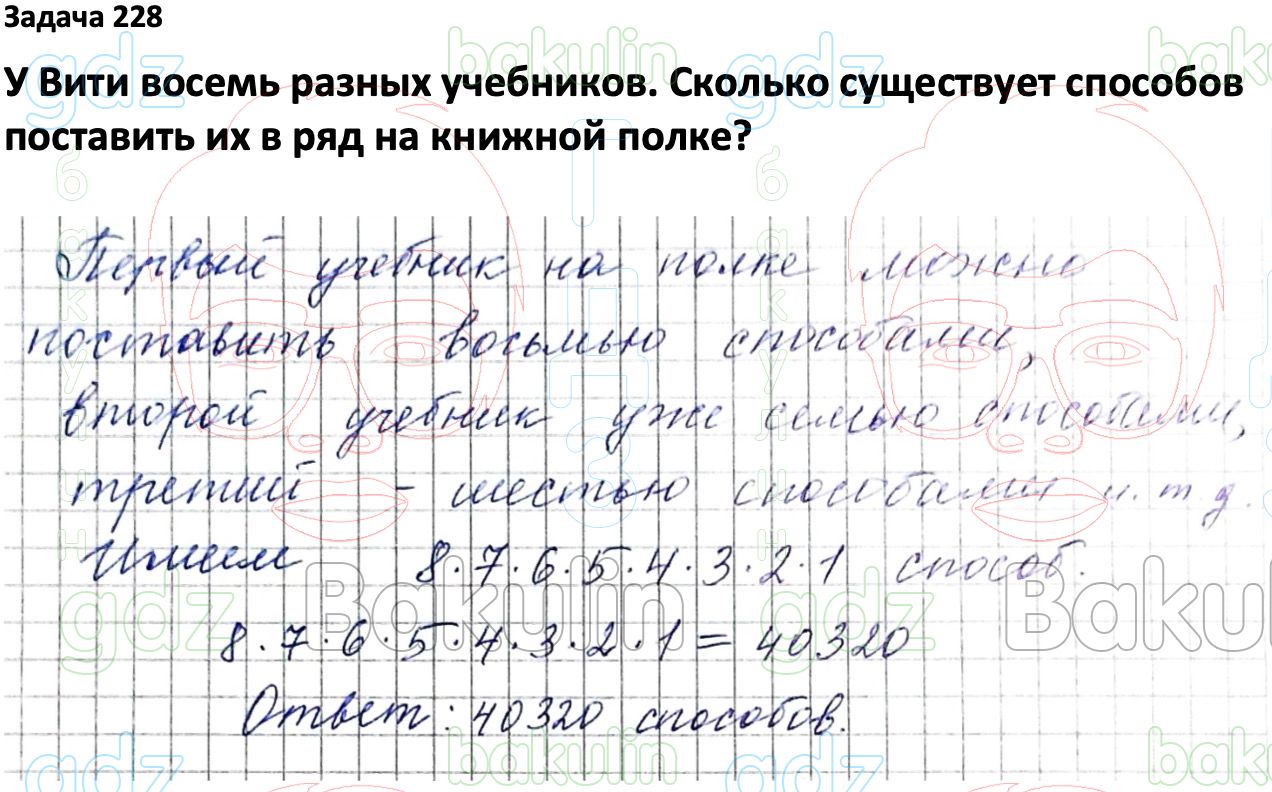 Задача 228
У Вити восемь разных учебников. Сколько существует способов
поставить их в ряд на книжной полке?
Первый учебник на полке можно
поставить восьмью способами,
второй учебник уже семью способами,
третий – шестью способами и т.д.
Имеем 8·7·6·5·4·3·2·1 способ.
8·7·6·5·4·3·2·1 = 40320
Ответ: 40320 способов.
gdz
bakulin
gdz
baku
б а к у л и н
Г Д З
б а к у л и н
gdz
Bakulin
gdz
Bakul
gdz
bakulin
gdz
baku